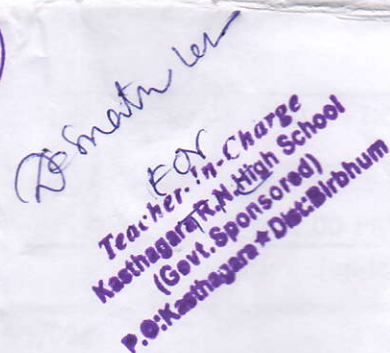 For
Teacher-in-Charge
Kasthagara R.N. High School
(Govt. Sponsored)
P.O:Kasthagara★Dist:Birbhum